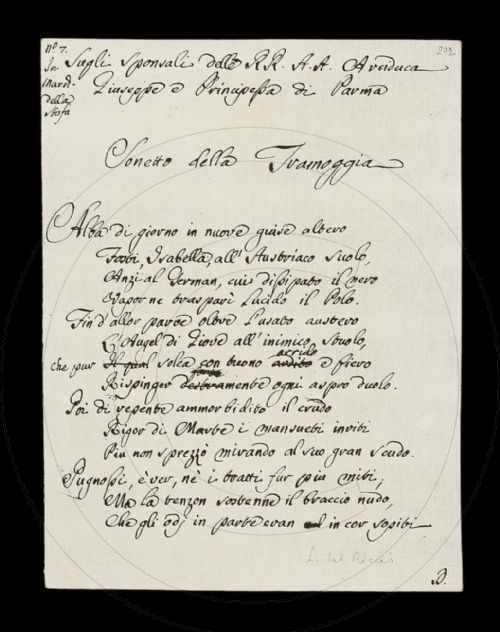 nº 7.
202
In
Mardi.
della
Stefa
Sugli Sponsali delle RR. AA. Arciduca
Giuseppe e Principessa di Parma
Sonetto della Tramoggia
Alba di giorno in nuove guise altero
Fosti, Isabella, all' Austriaco Suolo,
Anzi al German, cui dissipato il nero
Vapor ne traspari lucido il Polo.
Fin d'allor parve oltre l'usato austero
L'Augel di Giove all' inimico Stuolo,
che pur Il qual solea con tuono ardito e fiero
Rispinger mente ogni aspro duolo.
Poi di repente ammorbidito il crudo
Rigor di Marte i mansueti inviti
Piu non sprezzò mirando al suo gran scudo.
Pugnossi, è ver, nè i tratti fur piu miti,
Ma la tenzon sostenne il braccio nudo,
Che gli odj in parte eran in cor sopiti
D.